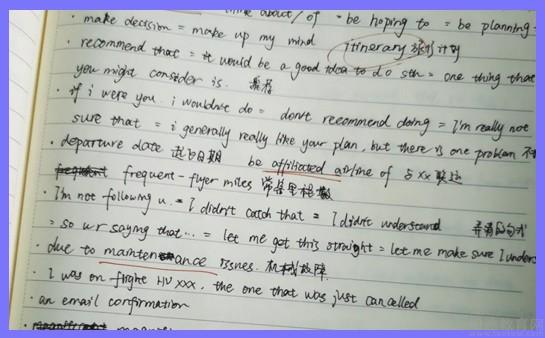 think about/of = be hoping to = be planning
· make decision = make up my mind itinerary 旅行计划
· recommend that = it would be a good idea to do sth = one thing that
you might consider is. 推荐
· if i were you. i wouldn't do = don't recommend doing = I'm really not
sure that = i generally really like your plan, but there is one problem 不
· departure date 起飞日期 be affiliated airline of 与xx联运
frequent-flyer miles 常客里程数
· I'm not following u. = I didn't catch that = I didn't understand 弄清的句式
= so u r saying that... = let me got this straight = let me make sure I unders
· due to maintenance issues. 机械故障
· I was on flight HU XXX, the one that was just cancelled
· an email confirmation